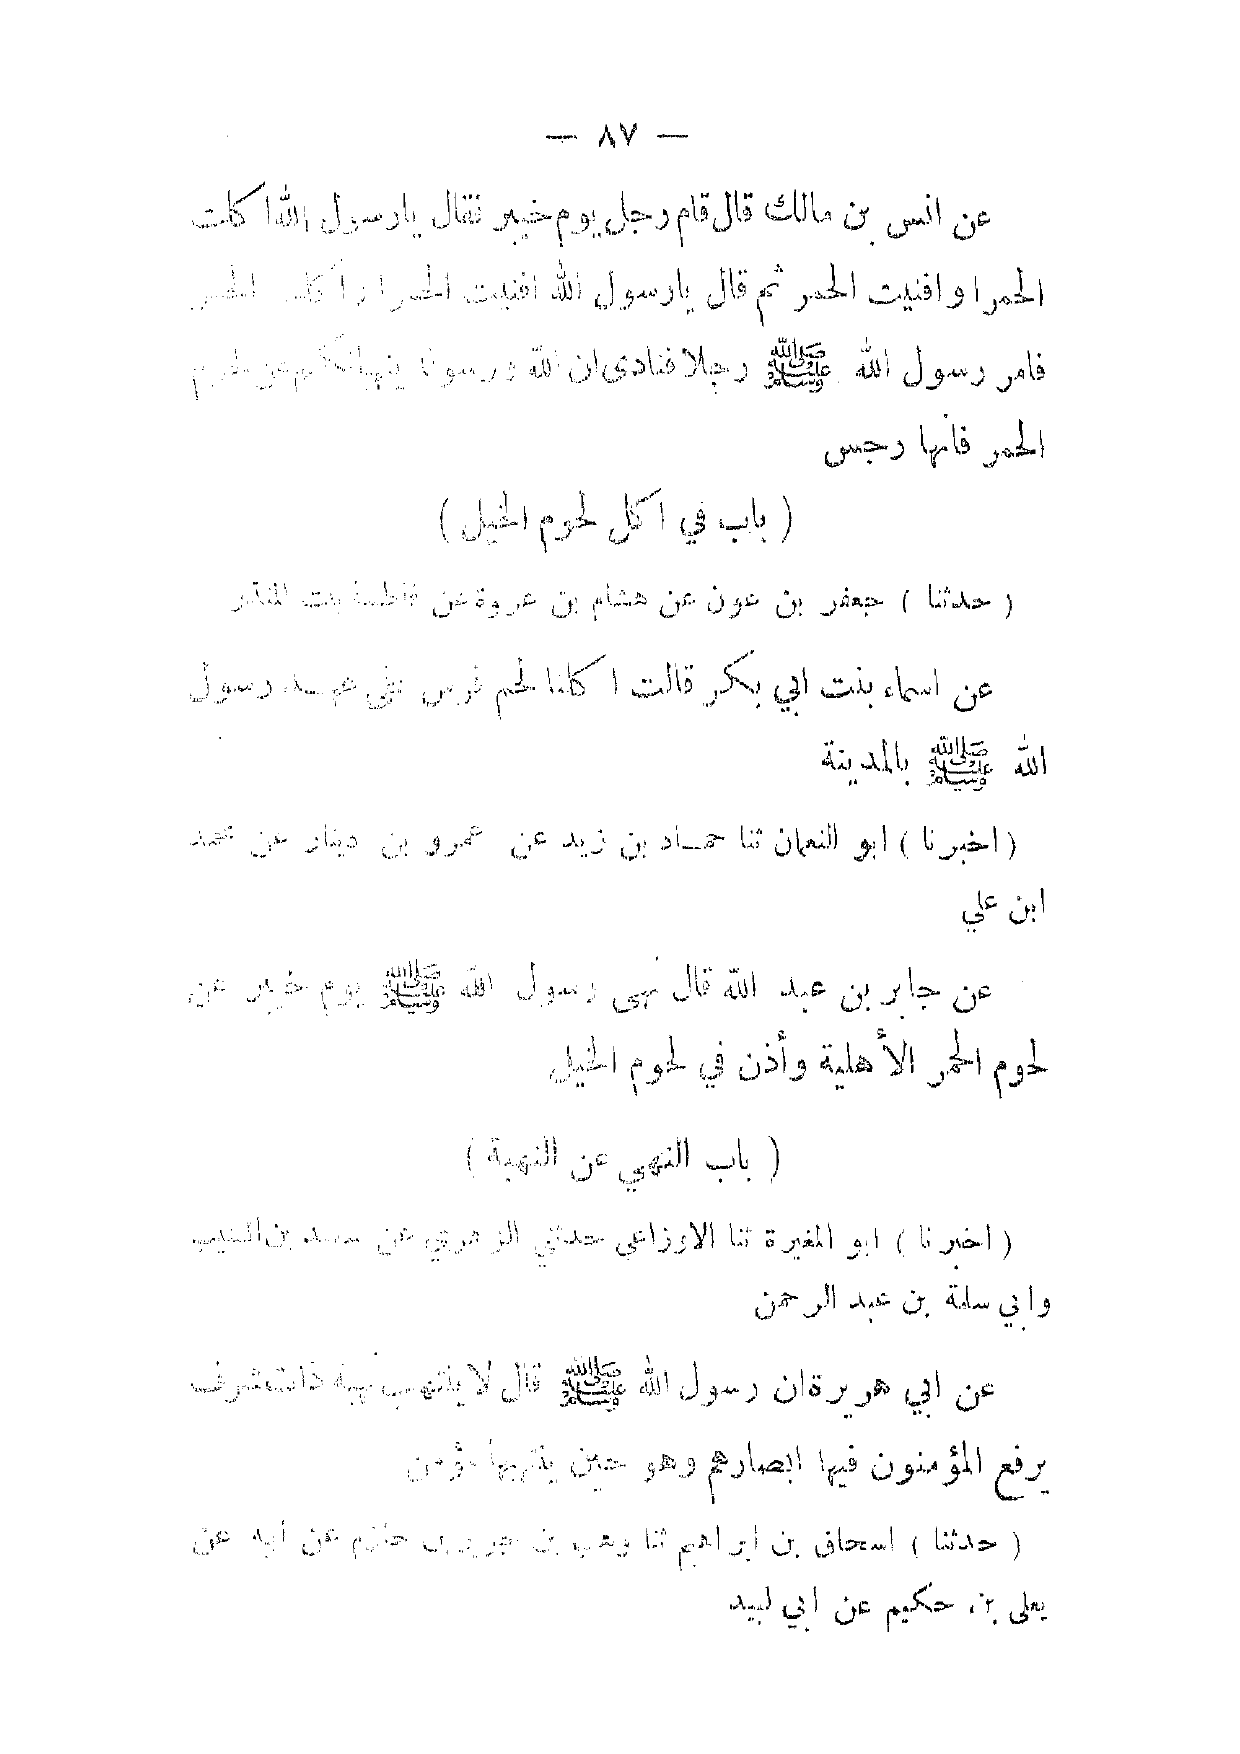 — ٨٧ —
عن انس بن مالك قال قام رجل يوم خيبر فقال يارسول الله اكلت
الحمر او افنيت الحمر ثم قال يارسول الله افنيت الحمر او اكلت الحمر
فامر رسول الله ﷺ رجلا فنادى ان الله ورسوله ينهيانكم عن لحوم
الحمر فانها رجس
( باب في اكل لحوم الخيل )
( حدثنا ) جعفر بن عون عن هشام بن عروة عن فاطمة بنت المنذر
عن اسماء بنت ابي بكر قالت اكلنا لحم فرس على عهد رسول
الله ﷺ بالمدينة
( اخبرنا ) ابو النعمان ثنا حماد بن زيد عن عمرو بن دينار عن محمد
ابن علي
عن جابر بن عبد الله قال نهى رسول الله ﷺ يوم خيبر عن
لحوم الحمر الأهلية وأذن في لحوم الخيل
( باب النهي عن النهبة )
( اخبرنا ) ابو المغيرة ثنا الاوزاعي حدثني الزهري عن سعيد بن المسيب
وابي سلمة بن عبد الرحمن
عن ابي هريرة ان رسول الله ﷺ قال لا ينتهب نهبة ذات شرف
يرفع المؤمنون فيها ابصارهم وهو حين ينتهبها مؤمن
( حدثنا ) اسحاق بن ابراهيم ثنا وهب بن جرير بن حازم عن أبيه عن
يعلى بن حكيم عن ابي لبيد